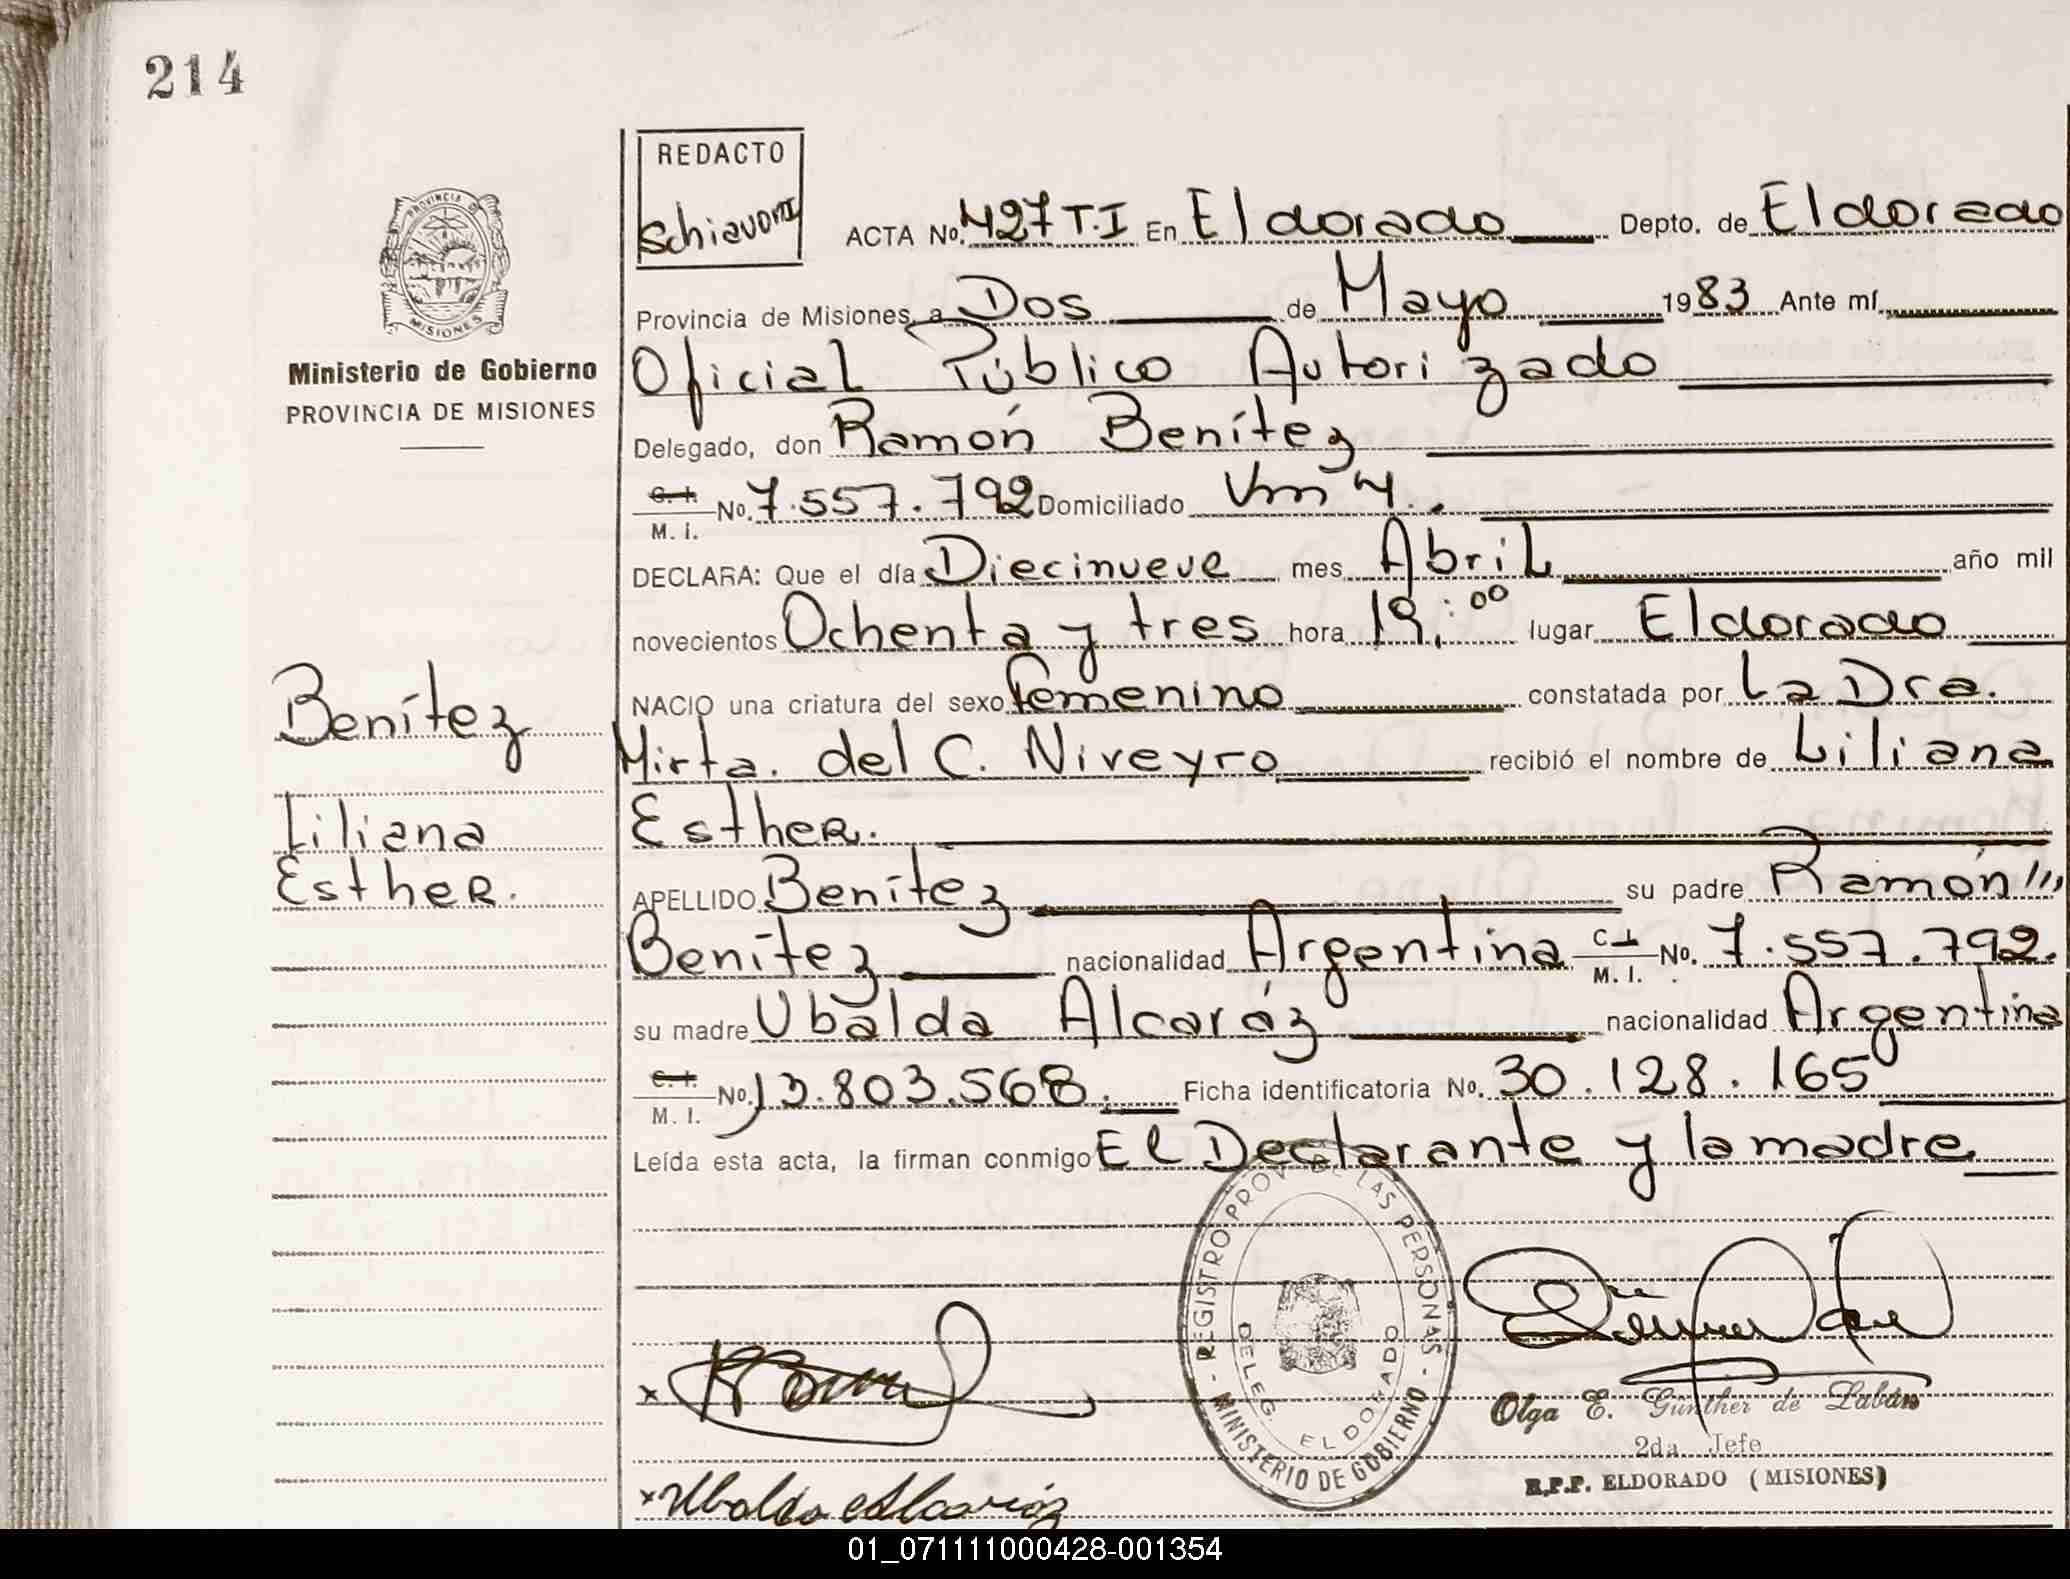 214
REDACTO
Schiavoni
ACTA No. 427 T.I En Eldorado Depto. de Eldorado
PROVINCIA DE
MISIONES
Provincia de Misiones, a Dos de Mayo 1983 Ante mí
Ministerio de Gobierno
PROVINCIA DE MISIONES
Oficial Público Autorizado
Delegado, don Ramón Benítez
C. I.
M. I. No. 7.557.792 Domiciliado Km 4.
DECLARA: Que el día Diecinueve mes Abril año mil
novecientos Ochenta y tres hora 19:00 lugar Eldorado
NACIO una criatura del sexo femenino constatada por La Dra.
Benítez
Mirta. del C. Niveyro recibió el nombre de Liliana
Liliana
Esther.
Esther.
APELLIDO Benítez su padre Ramón
Benítez nacionalidad Argentina C. I.
M. I. No. 7.557.792.
su madre Ubalda Alcaráz nacionalidad Argentina
C. I.
M. I. No. 13.803.568. Ficha identificatoria No. 30.128.165
Leída esta acta, la firman conmigo El Declarante y la madre
REGISTRO PROV. DE LAS PERSONAS
DELEG. ELDORADO
MINISTERIO DE GOBIERNO
Olga E. Günther de Labán
2da Jefe
R.P.P. ELDORADO (MISIONES)
x Ubalda Alcaráz
01_071111000428-001354